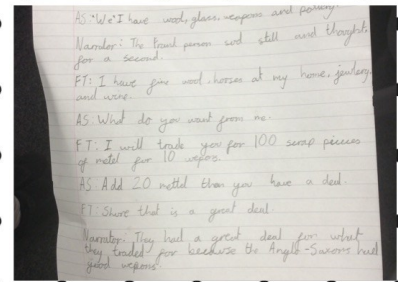 AS: "We" I have wool, glass, weapons and pottery.
Narrator: The Frank person sod still and thought,
for a second.
FT: I have fine wool, horses at my home, jewlery,
and wine.
AS: What do you want from me.
FT: I will trade you for 100 scrap pieces
of metel for 10 wepons.
AS: Add 20 mettel then you have a deal.
FT: Shure that is a great deal.
Narrator: They had a great deal for what
they traded for because the Anglo-Saxons had
good wepons.